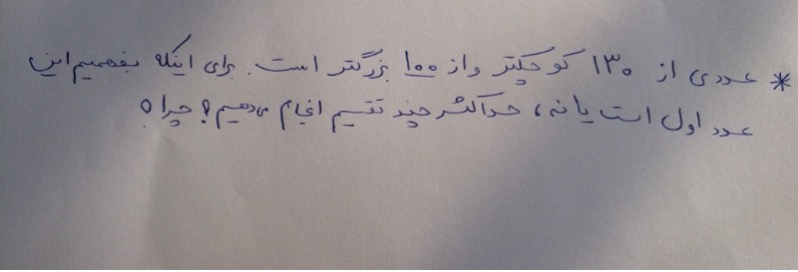 * عددی از ۱۳۰ کوچکتر و از ۱۰۰ بزرگتر است. برای اینکه بفهمیم این
عدد اول است یا نه، حداکثر چند تقسیم انجام می‌دهیم؟ چرا؟